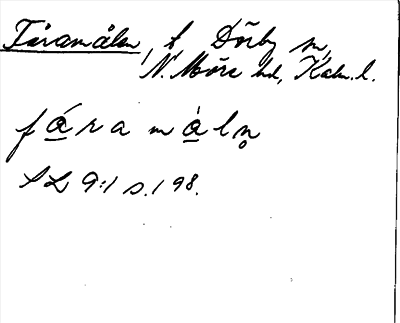 Fåramåln, t, Dörby sn,
N. Möre hd, Kalm. l.
fåra måln̥
SL 9:1 s. 198.